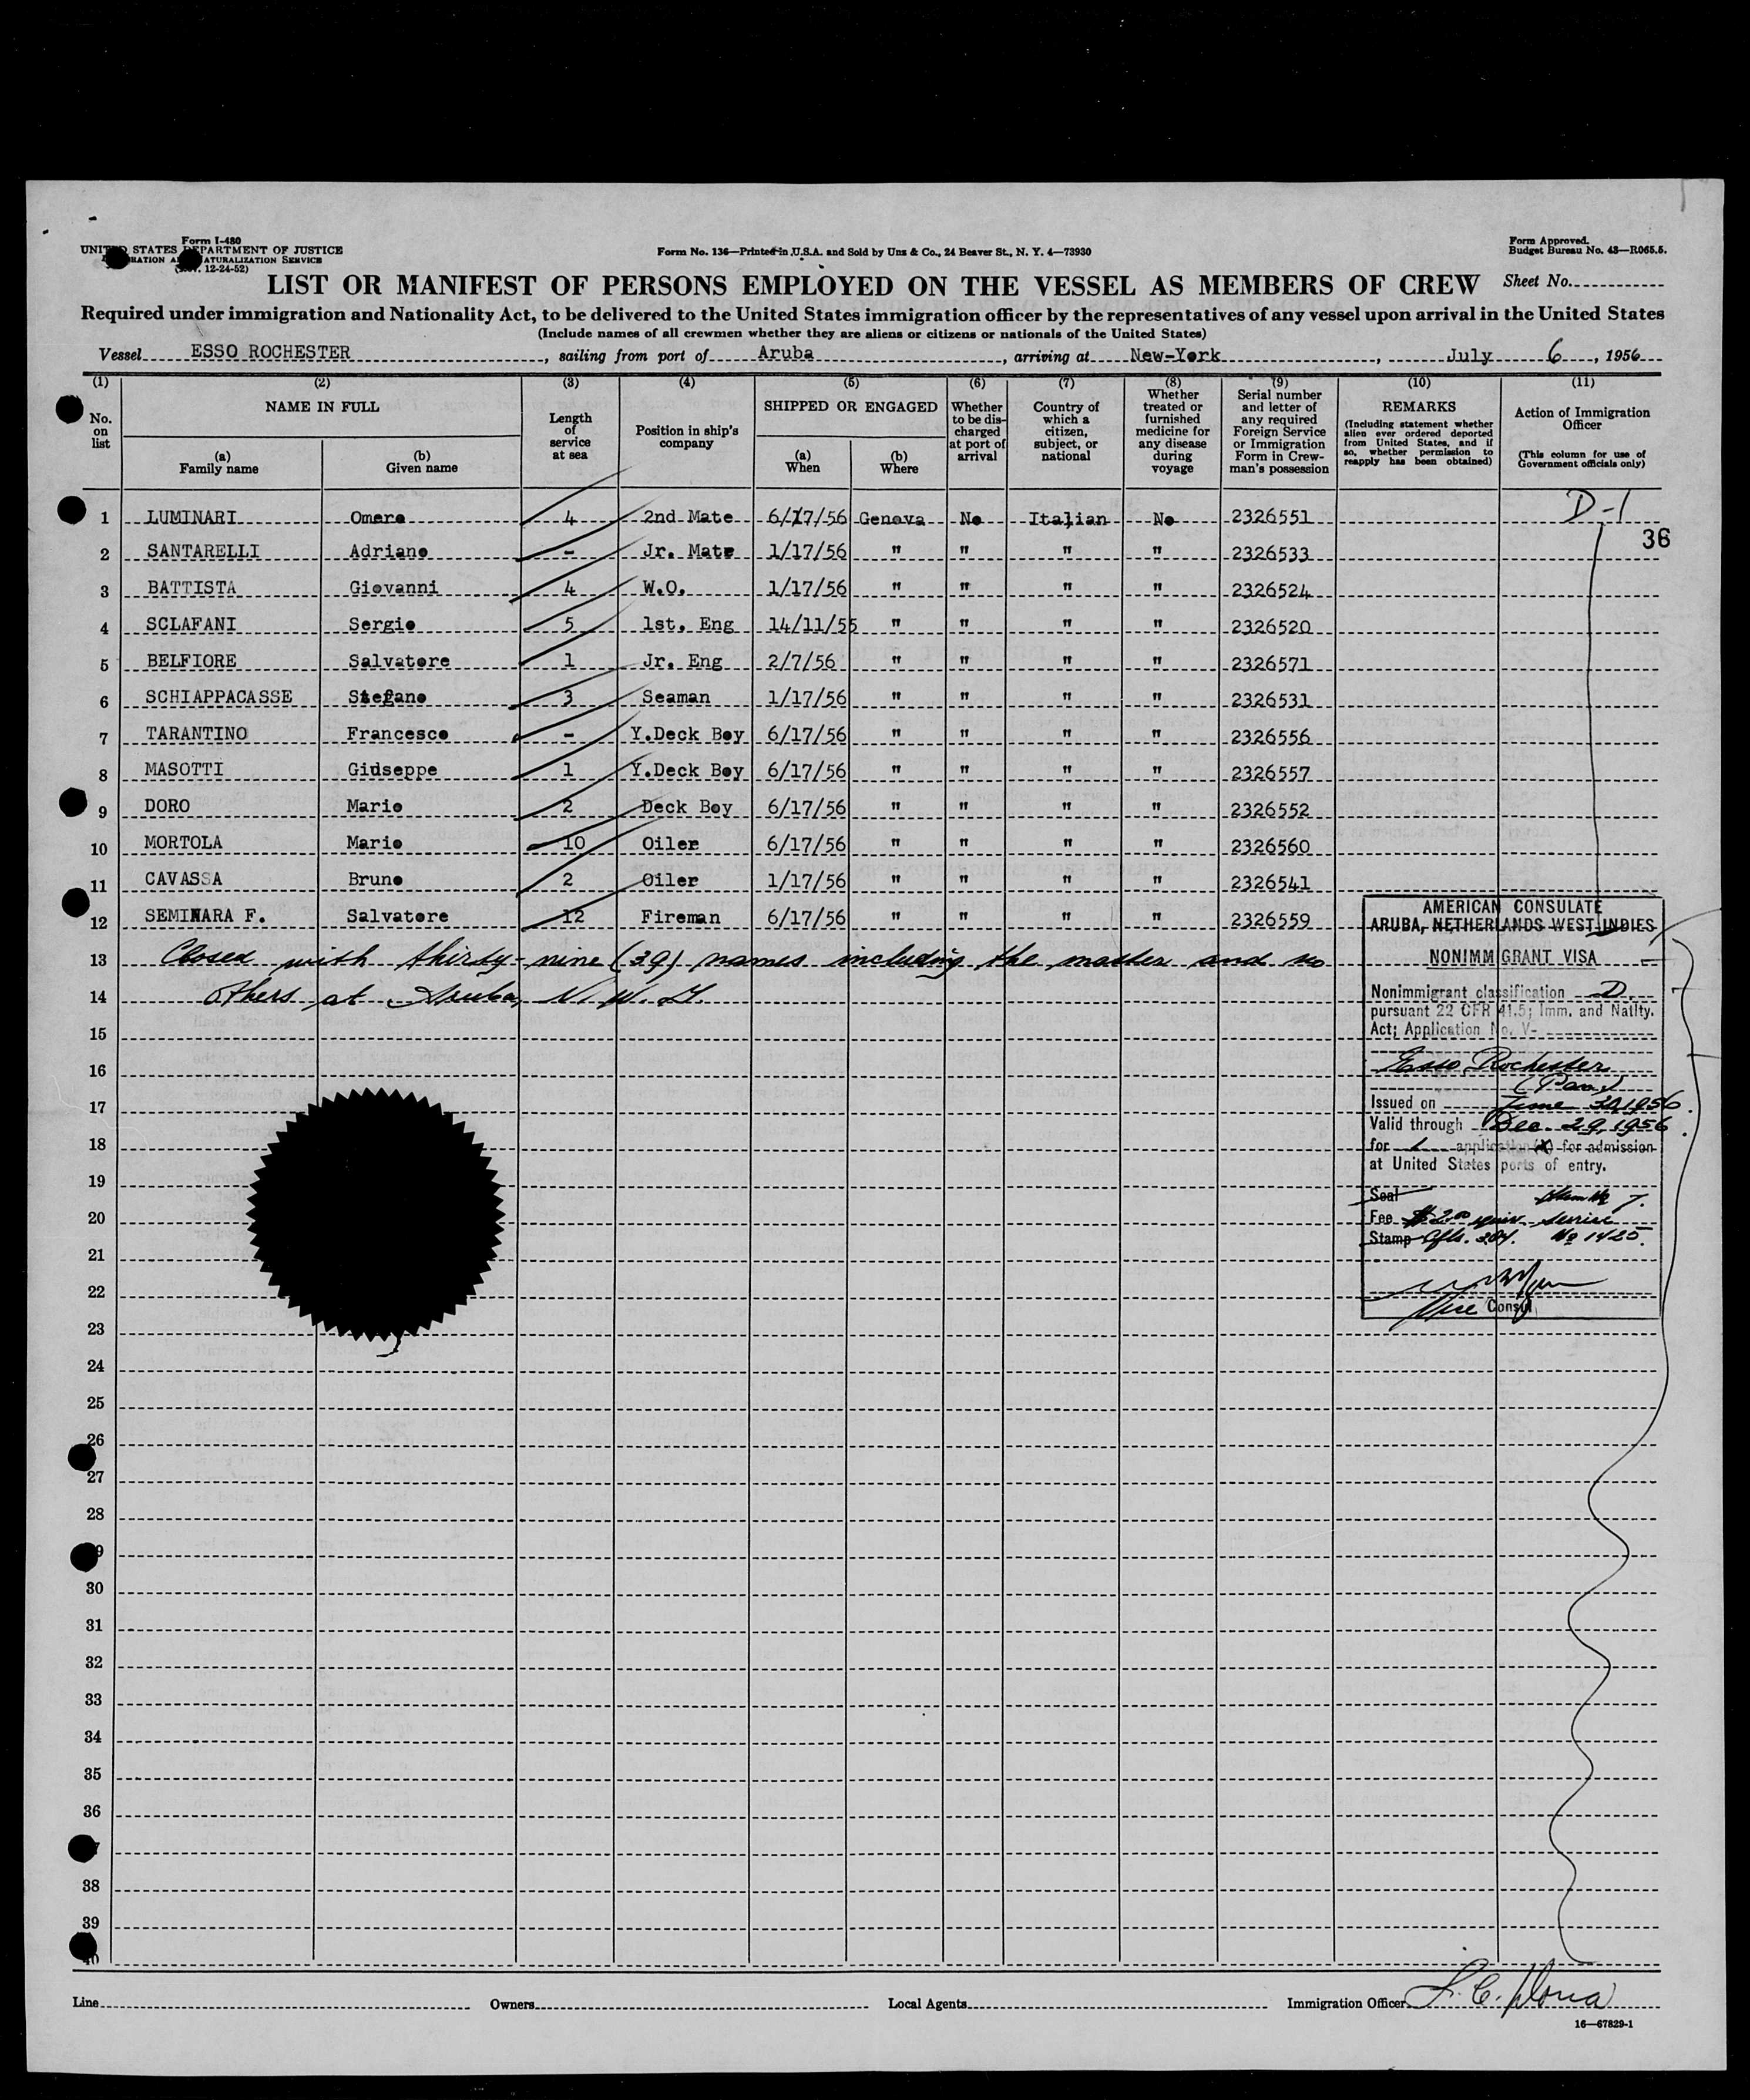 Form I-480
UNITED STATES DEPARTMENT OF JUSTICE
NATURALIZATION SERVICE
12-24-52)
Form No. 136—Printed in U.S.A. and Sold by Unz & Co., 24 Beaver St., N. Y. 4—73930
Form Approved.
Budget Bureau No. 43—R065.5.
LIST OR MANIFEST OF PERSONS EMPLOYED ON THE VESSEL AS MEMBERS OF CREW Sheet No.
Required under immigration and Nationality Act, to be delivered to the United States immigration officer by the representatives of any vessel upon arrival in the United States
(Include names of all crewmen whether they are aliens or citizens or nationals of the United States)
Vessel ESSO ROCHESTER, sailing from port of Aruba, arriving at New-York, July 6, 1956
(1) (2) (3) (4) (5) (6) (7) (8) (9) (10) (11)
No. on list
NAME IN FULL
(a) Family name
(b) Given name
Length of service at sea
Position in ship's company
SHIPPED OR ENGAGED
(a) When
(b) Where
Whether to be discharged at port of arrival
Country of which a citizen, subject, or national
Whether treated or furnished medicine for any disease during voyage
Serial number and letter of any required Foreign Service or Immigration Form in Crewman's possession
REMARKS
(Including statement whether alien ever ordered deported from United States, and if so, whether permission to reapply has been obtained)
Action of Immigration Officer
(This column for use of Government officials only)
1 LUMINARI Omero 4 2nd Mate 6/17/56 Genova No Italian No 2326551 D-1
36
2 SANTARELLI Adriano - Jr. Mate 1/17/56 " " " " 2326533
3 BATTISTA Giovanni 4 W.O. 1/17/56 " " " " 2326524
4 SCLAFANI Sergio 5 1st. Eng 14/11/55 " " " " 2326520
5 BELFIORE Salvatore 1 Jr. Eng 2/7/56 " " " " 2326571
6 SCHIAPPACASSE Stefano 3 Seaman 1/17/56 " " " " 2326531
7 TARANTINO Francesco - Y.Deck Boy 6/17/56 " " " " 2326556
8 MASOTTI Giuseppe 1 Y.Deck Boy 6/17/56 " " " " 2326557
9 DORO Mario 2 Deck Boy 6/17/56 " " " " 2326552
10 MORTOLA Mario 10 Oiler 6/17/56 " " " " 2326560
11 CAVASSA Bruno 2 Oiler 1/17/56 " " " " 2326541
12 SEMINARA F. Salvatore 12 Fireman 6/17/56 " " " " 2326559
13 Closed with thirty-nine (39) names including the master and no
14 others at Aruba, N. W. I.
15
16
17
18
19
20
21
22
23
24
25
26
27
28
30
31
32
33
34
35
36
38
39
AMERICAN CONSULATE
ARUBA, NETHERLANDS WEST INDIES
NONIMMIGRANT VISA
Nonimmigrant classification D
pursuant 22 CFR 41.5; Imm. and Natlty.
Act; Application No. V-
Esso Rochester
(Pan.)
Issued on June 30, 1956
Valid through Dec. 29, 1956
for 1 application(s) for admission
at United States ports of entry.
Seal Item No 7.
Fee $2.00 equiv. Service
Stamp No 1425.
Vice Consul
Line
Owners
Local Agents
Immigration Officer
16—67829-1